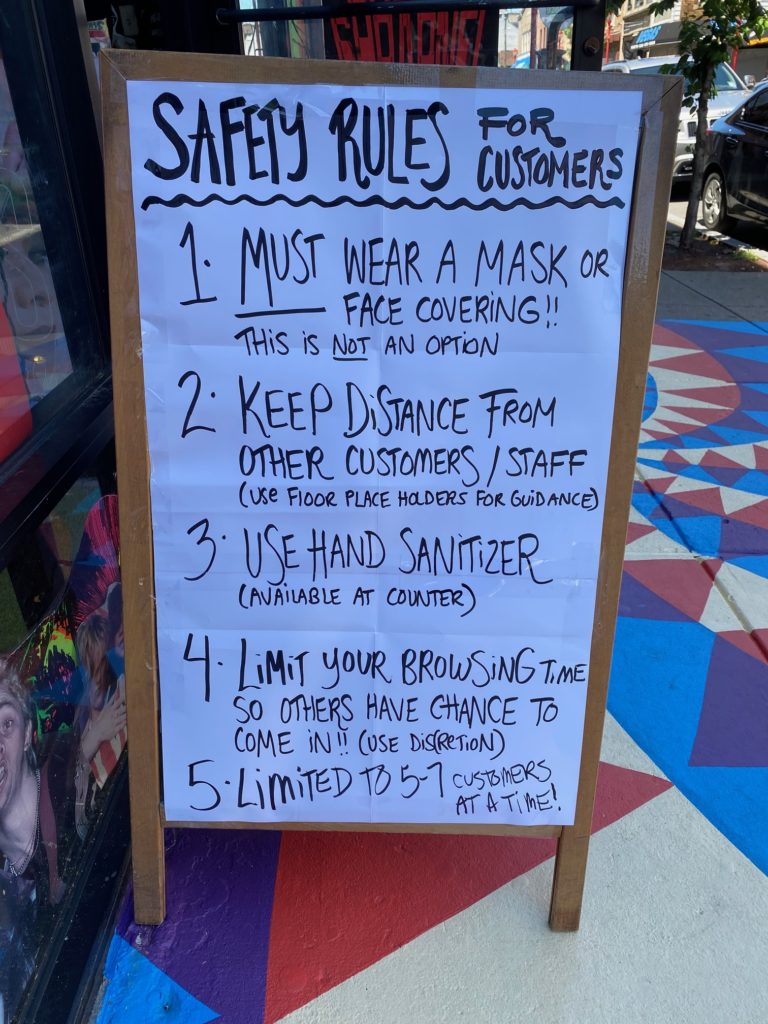 SAFETY RULES FOR CUSTOMERS
1. MUST WEAR A MASK OR
FACE COVERING!!
THIS IS NOT AN OPTION
2. KEEP DISTANCE FROM
OTHER CUSTOMERS / STAFF
(USE FLOOR PLACE HOLDERS FOR GUIDANCE)
3. USE HAND SANITIZER
(AVAILABLE AT COUNTER)
4. LIMIT YOUR BROWSING TIME
SO OTHERS HAVE CHANCE TO
COME IN!! (USE DISCRETION)
5. LIMITED TO 5-7 CUSTOMERS
AT A TIME!